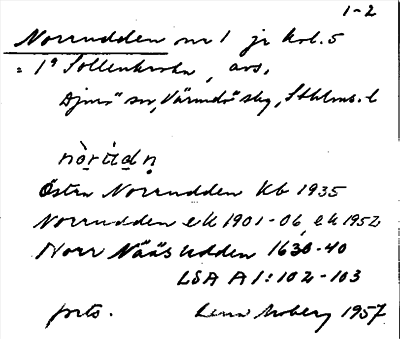 1-2
Norrudden nr 1 jr kol. 5
= 1⁹ Sollenkroka, avs.
Djurö sn, Värmdö skg, Sthlms. l
nòrùdn̥
Östra Norrudden Kb 1935
Norrudden ek 1901-06, ek 1952
Norr Nääs Udden 1630-40
LSA A 1:102-103
forts. Lena Moberg 1957